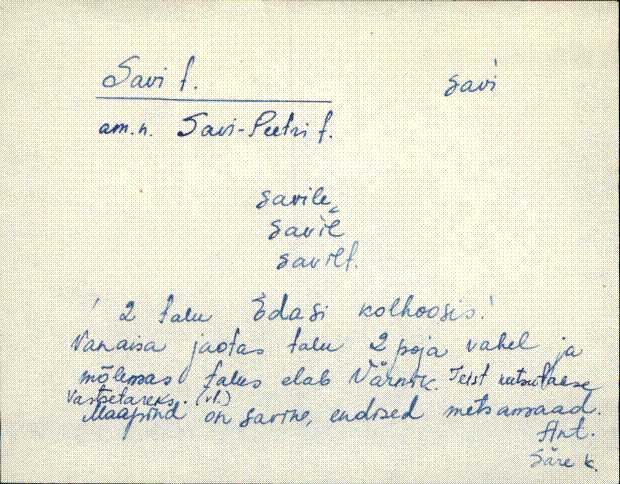 Savi t. savi
am.n. Savi-Peetri t.
savile
savil
savilt.
2 talu Edasi kolhoosis.
Vanaisa jaotas talu 2 poja vahel ja
mõlemas talus elab Värnik. Teist kutsutakse
Vastsetareks. (vt.)
Maapind on savine, endised metsamaad.
Ant.
Säre k.